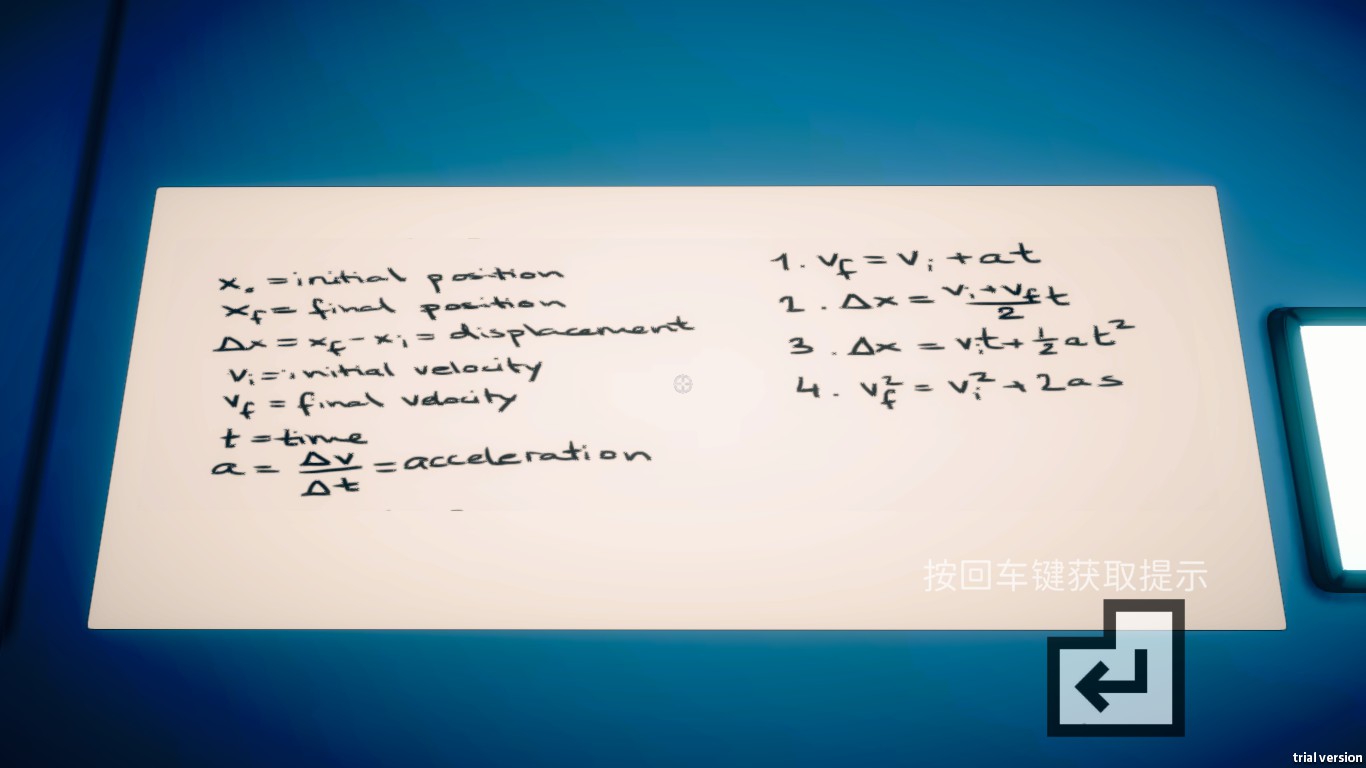 x. = initial position
x_f = final position
Δx = x_f - x_i = displacement
v_i = initial velocity
v_f = final velocity
t = time
a = Δv/Δt = acceleration
1. v_f = v_i + at
2. Δx = (v_i + v_f)/2 t
3. Δx = v_i t + 1/2 at²
4. v_f² = v_i² + 2as
按回车键获取提示
trial version